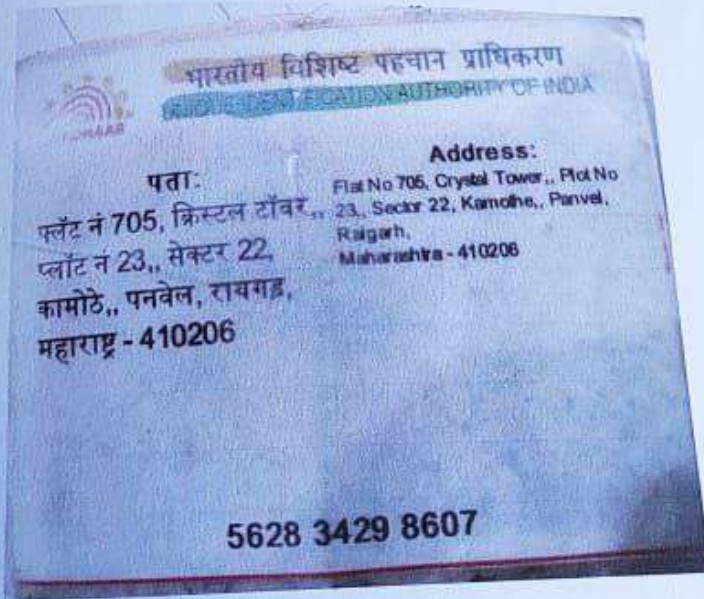 भारतीय विशिष्ट पहचान प्राधिकरण
UNIQUE IDENTIFICATION AUTHORITY OF INDIA
AADHAAR
पता:
फ्लॅट नं 705, क्रिस्टल टॉवर,,
प्लॉट नं 23,, सेक्टर 22,
कामोठे,, पनवेल, रायगड,
महाराष्ट्र - 410206
Address:
Flat No 705, Crystal Tower,, Plot No
23,, Sector 22, Kamothe,, Panvel,
Raigarh,
Maharashtra - 410206
5628 3429 8607